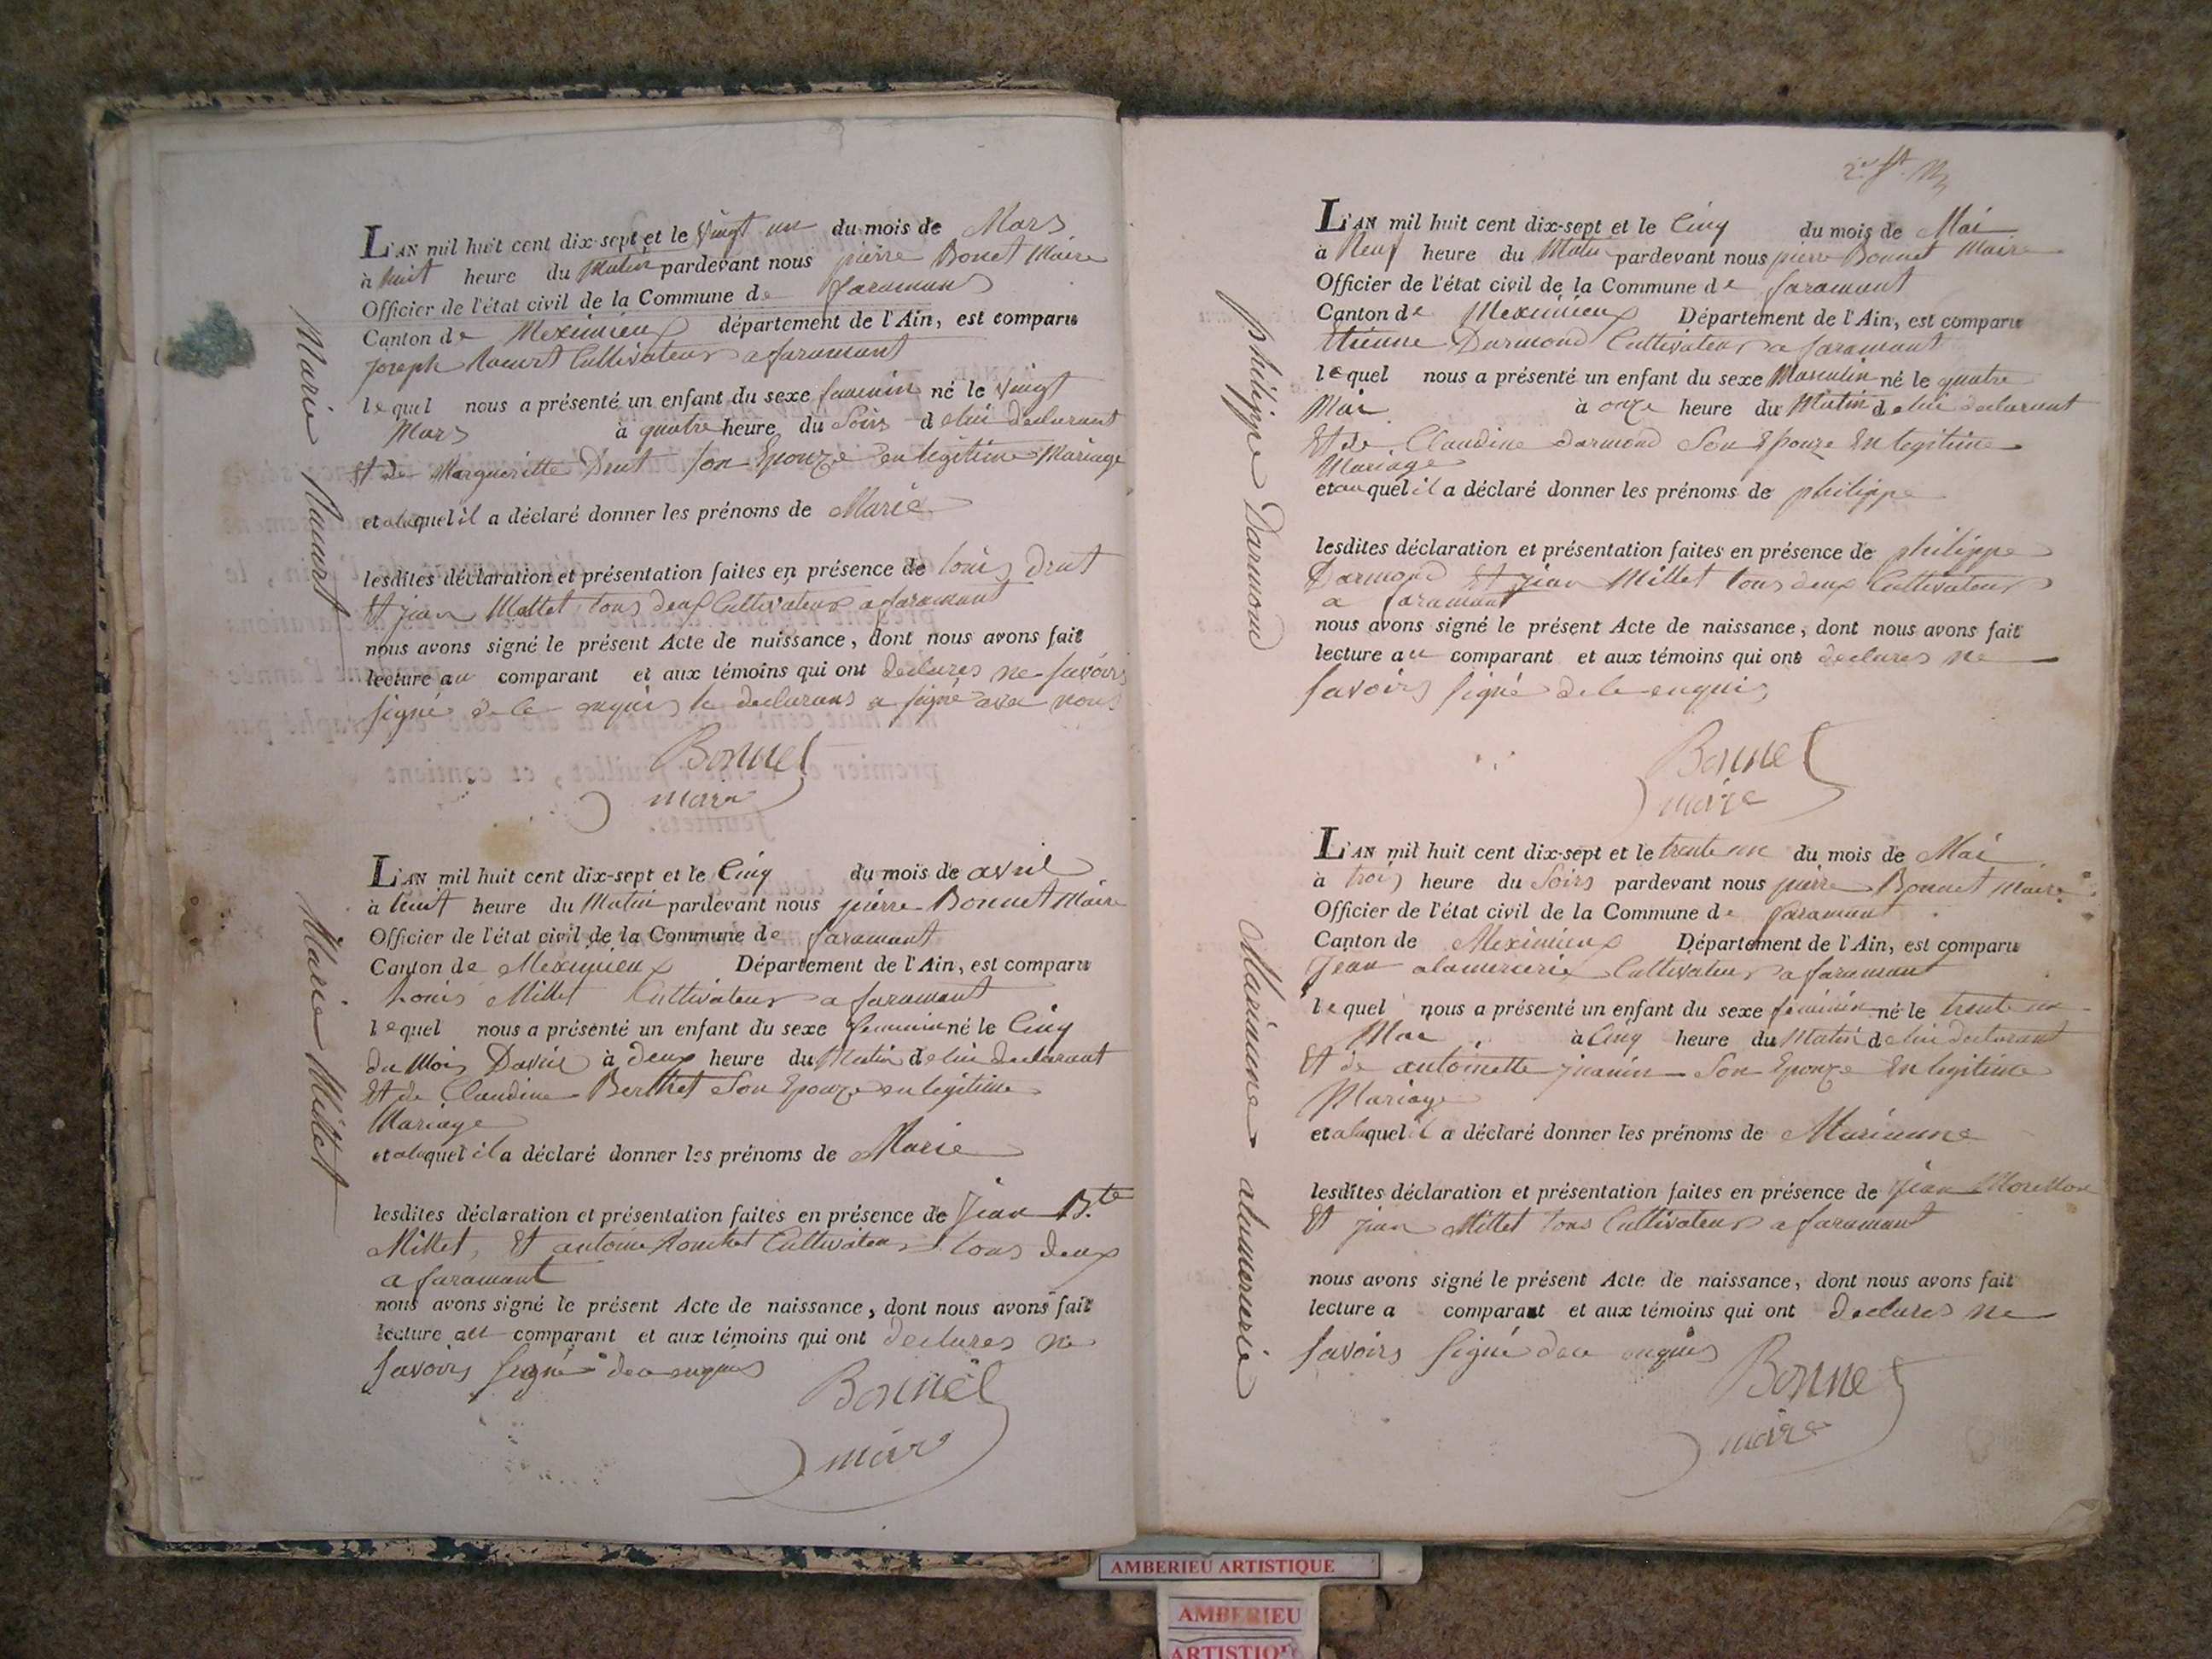 L'AN mil huit cent dix-sept et le vingt un du mois de Mars
à huit heure du Matin pardevant nous pierre Bonet Maire
Officier de l'état civil de la Commune de faramant
Canton de Meximieux département de l'Ain, est comparu
joseph Cultivateur a faramant
lequel nous a présenté un enfant du sexe feminin né le vingt
Mars à quatre heure du Soirs de lui declarant
Et de Margueritte Drut son Epouze en legitime Mariage
et alaquel il a déclaré donner les prénoms de Marie
lesdites déclaration et présentation faites en présence de louis drut
Et jean Mallet tous deux Cultivateur a faramant
nous avons signé le présent Acte de naissance, dont nous avons fait
lecture au comparant et aux témoins qui ont declares ne savoirs
signé de ce enquis le declarans a signé avec nous
Bonnet
maire
Marie
L'AN mil huit cent dix-sept et le Cinq du mois de avril
à huit heure du Matin pardevant nous pierre Bonnet Maire
Officier de l'état civil de la Commune de faramant
Canton de Meximieux Département de l'Ain, est comparu
Louis Millet Cultivateur a faramant
lequel nous a présenté un enfant du sexe feminin né le Cinq
du Mois Davril à deux heure du Matin de lui declarant
Et de Claudine Berthet Son Epouze en legitime
Mariage
et alaquel il a déclaré donner les prénoms de Marie
lesdites déclaration et présentation faites en présence de Jean Bte
Millet, Et antoine Cultivateur tous deux
a faramant
nous avons signé le présent Acte de naissance, dont nous avons fait
lecture au comparant et aux témoins qui ont declares ne
savoirs signé de ce enquis
Bonnet
maire
Marie Millet
2e ft
L'AN mil huit cent dix-sept et le Cinq du mois de Mai
à Neuf heure du Matin pardevant nous pierre Bonnet Maire
Officier de l'état civil de la Commune de faramant
Canton de Meximieux Département de l'Ain, est comparu
Etienne Darmond Cultivateur a faramant
lequel nous a présenté un enfant du sexe Masculin né le quatre
Mai à onze heure du Matin de lui declarant
Et de Claudine darmond Son Epouze En legitime
Mariage
et auquel il a déclaré donner les prénoms de philippe
lesdites déclaration et présentation faites en présence de philippe
Darmond Et jean Millet tous deux Cultivateur
a faramant
nous avons signé le présent Acte de naissance, dont nous avons fait
lecture au comparant et aux témoins qui ont declares ne
savoirs signé de ce enquis
Bonnet
maire
philippe Darmond
L'AN mil huit cent dix-sept et le trente un du mois de Mai
à trois heure du Soirs pardevant nous pierre Bonnet Maire
Officier de l'état civil de la Commune de faramant
Canton de Meximieux Département de l'Ain, est comparu
Jean alamercerie Cultivateur a faramant
lequel nous a présenté un enfant du sexe féminin né le trente un
Mai à Cinq heure du Matin de lui declarant
Et de antoinette juanin Son Epouze En legitime
Mariage
et alaquel il a déclaré donner les prénoms de Marianne
lesdites déclaration et présentation faites en présence de Jean Morellon
Et jean Millet tous Cultivateur a faramant
nous avons signé le présent Acte de naissance, dont nous avons fait
lecture a comparant et aux témoins qui ont declares ne
savoirs signé de ce enquis
Bonnet
maire
Marianne alamercerie
AMBERIEU ARTISTIQUE
AMBERIEU
ARTISTIQUE